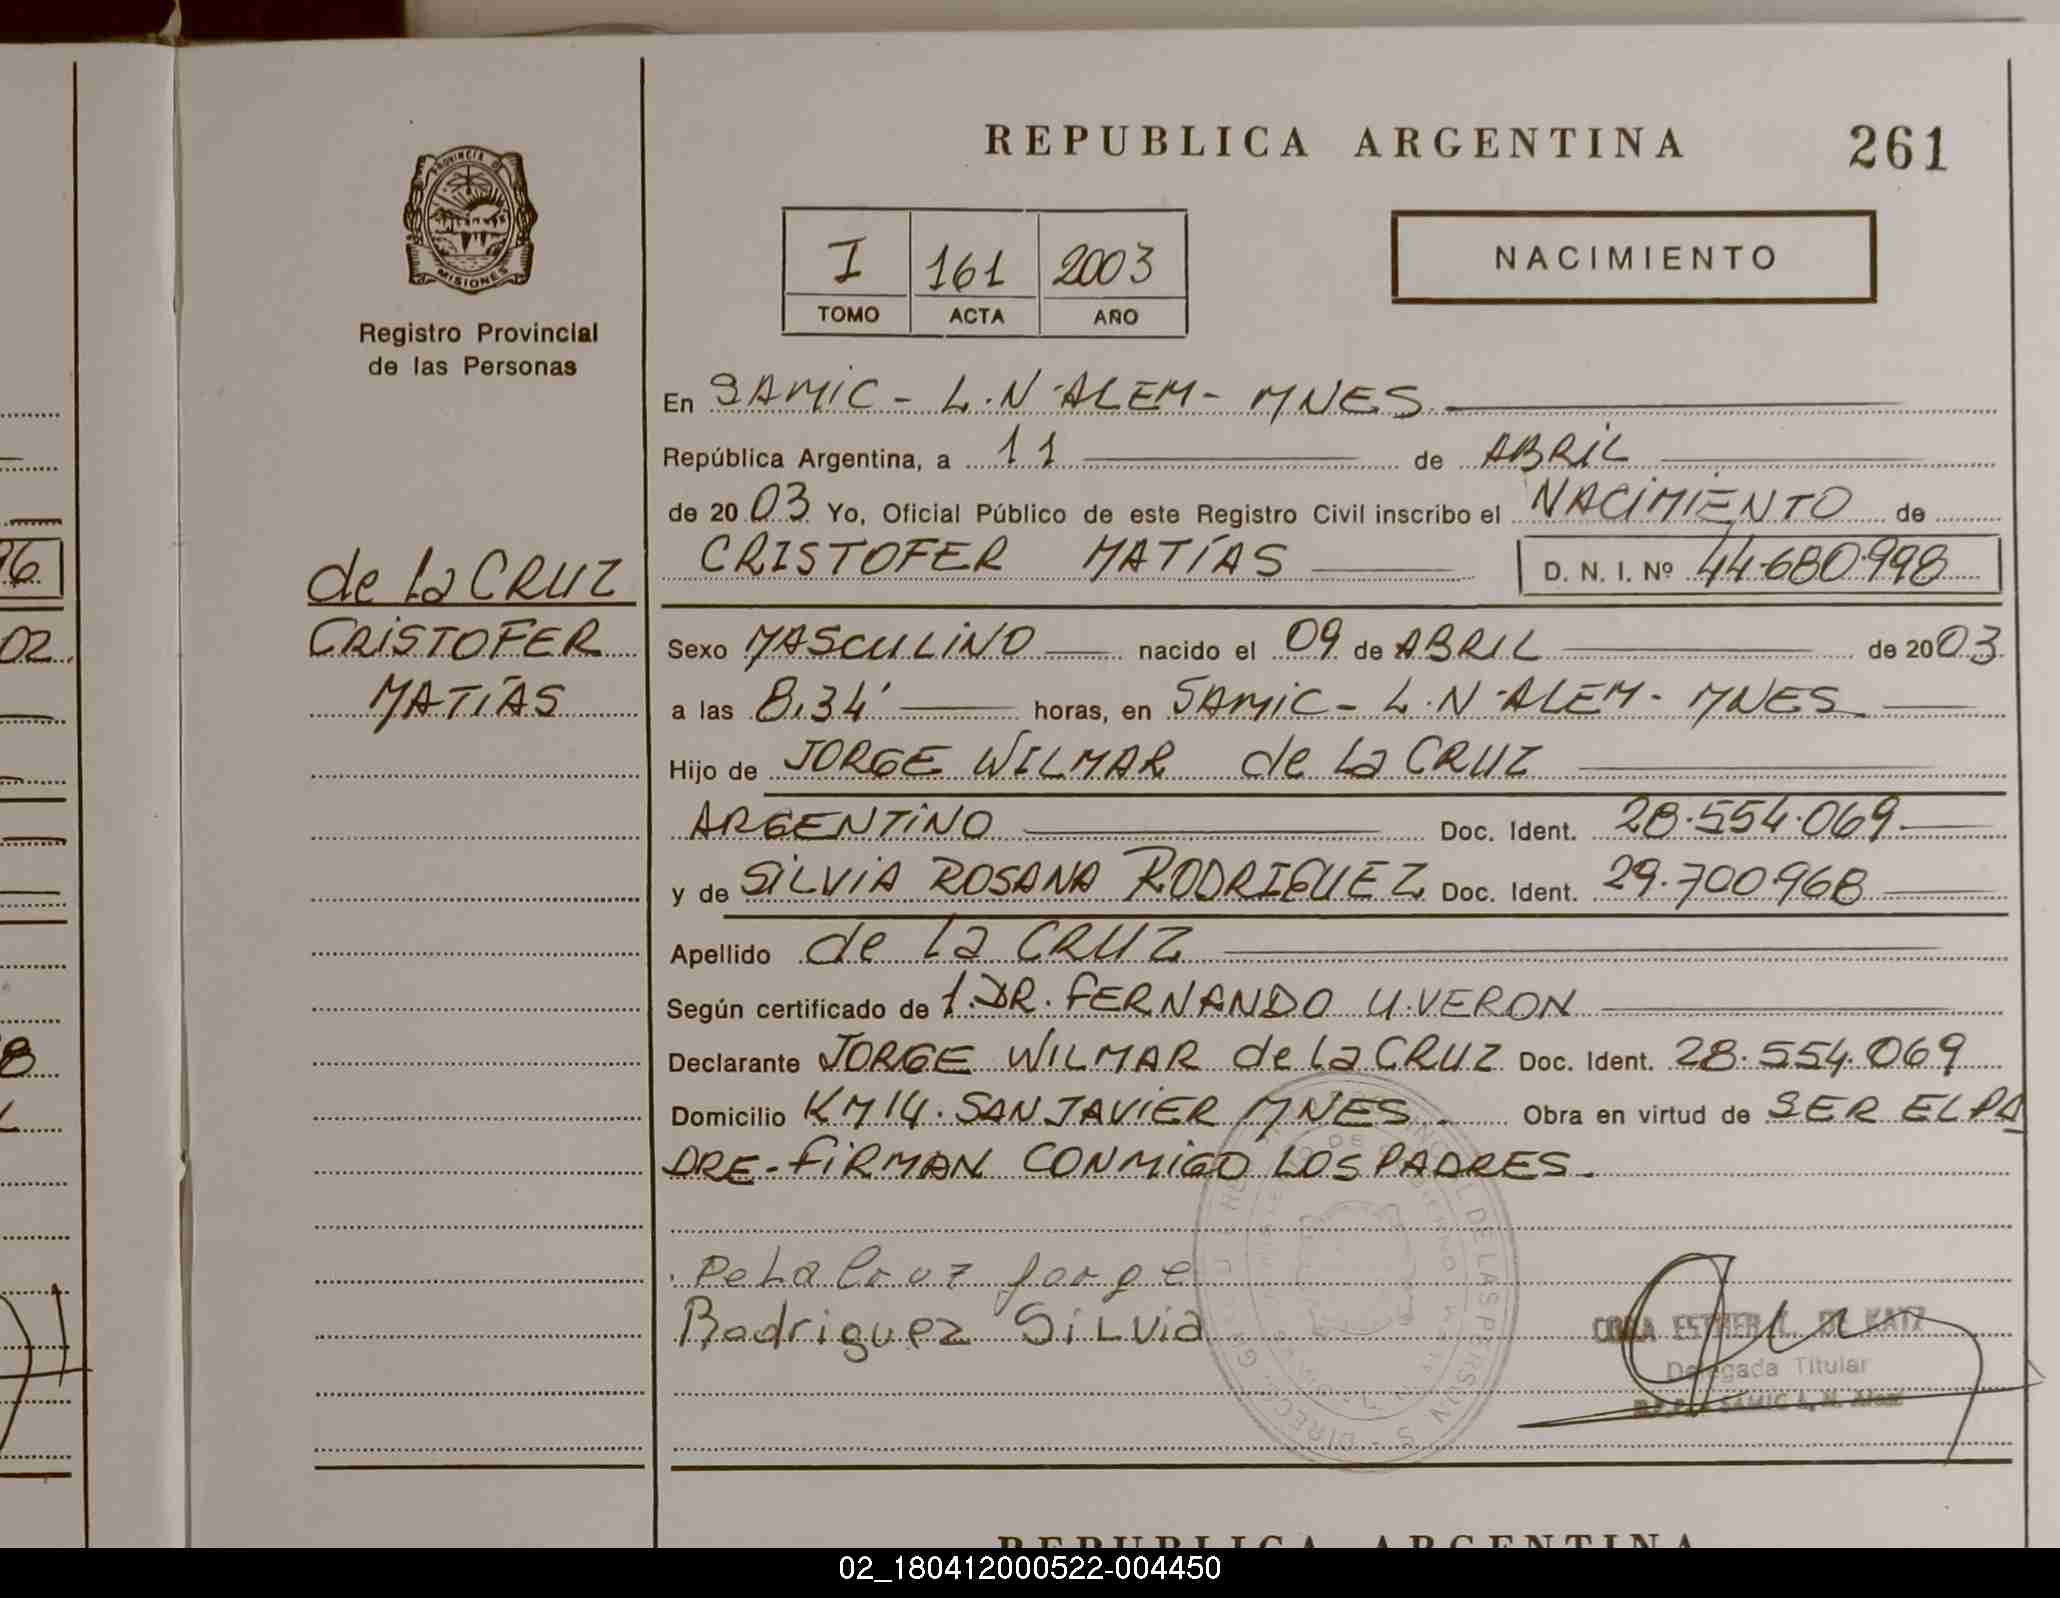 REPUBLICA ARGENTINA 261
PROVINCIA DE
MISIONES
Registro Provincial
de las Personas
I 161 2003
TOMO ACTA AÑO
NACIMIENTO
En SAMIC - L.N. ALEM - MNES
República Argentina, a 11 de ABRIL
de 2003 Yo, Oficial Público de este Registro Civil inscribo el NACIMIENTO de
CRISTOFER MATÍAS D. N. I. Nº 44.680.998
de la CRUZ
CRISTOFER
MATÍAS
Sexo MASCULINO nacido el 09 de ABRIL de 2003
a las 8,34' horas, en SAMIC - L.N. ALEM - MNES
Hijo de JORGE WILMAR de la CRUZ
ARGENTINO Doc. Ident. 28.554.069
y de SILVIA ROSANA RODRIGUEZ Doc. Ident. 29.700.968
Apellido de la CRUZ
Según certificado de 1. DR. FERNANDO U. VERON
Declarante JORGE WILMAR de la CRUZ Doc. Ident. 28.554.069
Domicilio KM 14. SAN JAVIER MNES. Obra en virtud de SER EL PA
DRE - FIRMAN CONMIGO LOS PADRES.
De La Cruz Jorge
Rodriguez Silvia
ESTHER DE KATZ
Delegada Titular
SAMIC L. N. Alem
REPUBLICA ARGENTINA
02_180412000522-004450